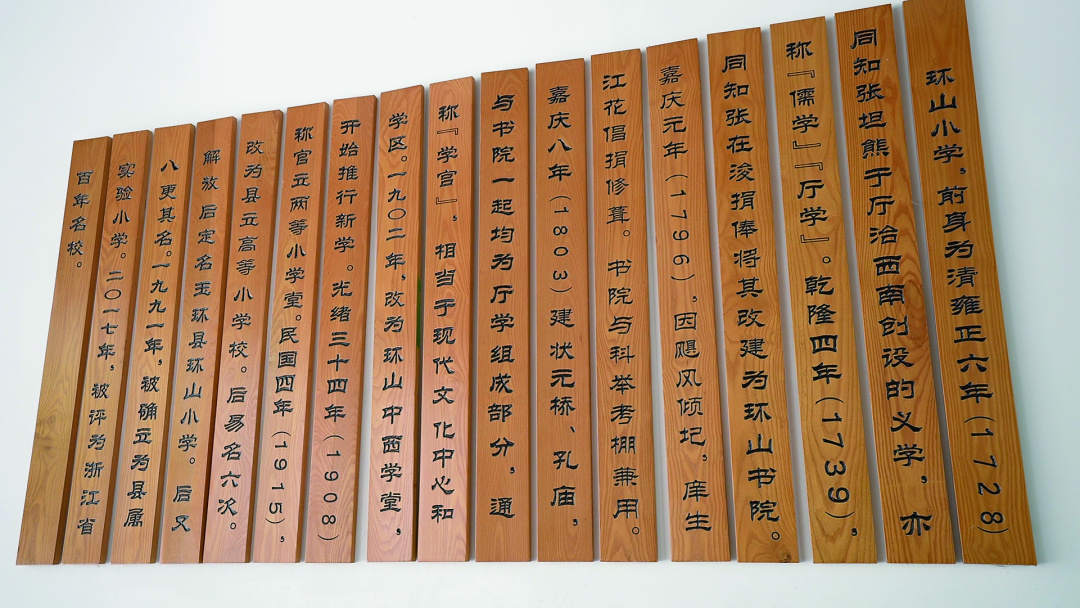 环山小学，前身为清雍正六年（1728）
同知张坦熊于厅治西南创设的义学，亦
称『儒学』『厅学』。乾隆四年（1739），
同知张在浚捐俸将其改建为环山书院。
嘉庆元年（1796），因飓风倾圮，庠生
江花倡捐修葺。书院与科举考棚兼用。
嘉庆八年（1803）建状元桥、孔庙，
与书院一起均为厅学组成部分，通
称『学宫』，相当于现代文化中心和
学区。一九〇二年，改为环山中西学堂，
开始推行新学。光绪三十四年（1908）
称官立两等小学堂。民国四年（1915），
改为县立高等小学校。后易名六次。
解放后定名玉环县环山小学。后又
八更其名。一九九一年，被确立为县属
实验小学。二〇一七年，被评为浙江省
百年名校。